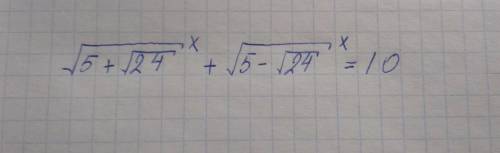 √(5 + √24)^x + √(5 - √24)^x = 10